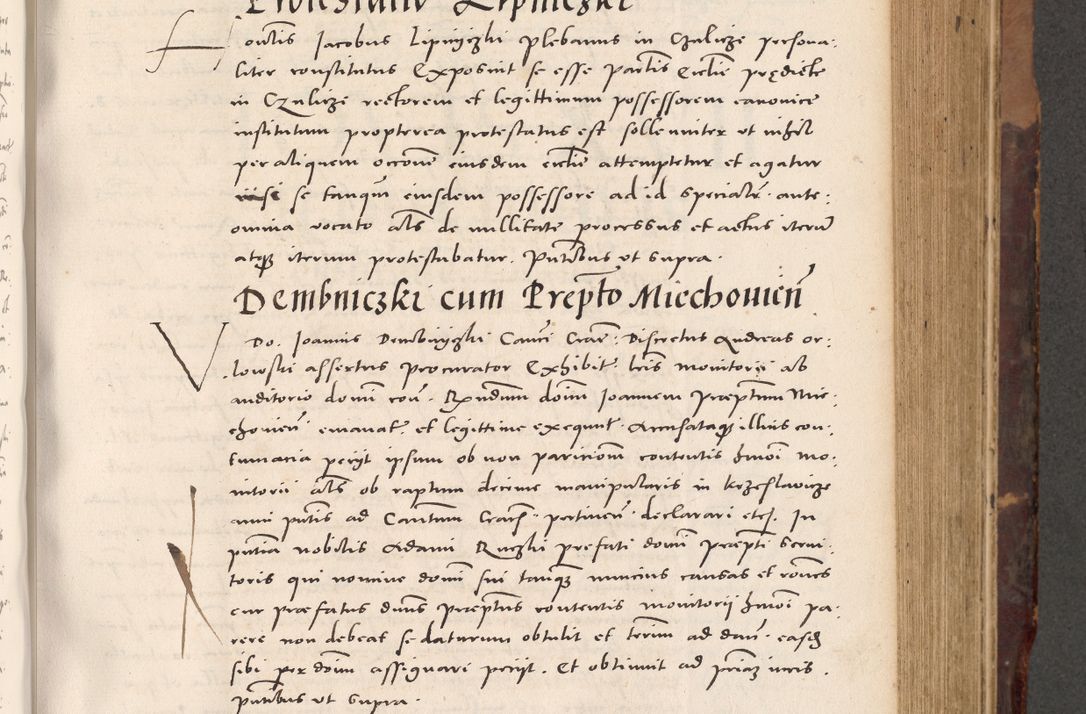 Protestatio Lipniczki
Honestis Jacobus Lipnyczki plebanus in Czulicze persona:
liter constitutus Exposuit se esse partis Ecclie predicte
in Czulicze rectorem et legittimum possessorem canonice
institutum propterea protestatus est sollenniter ut nihil
per aliquem occone eiusdem ecclie attemptetur et agatur
nisi se tanquam eiusdem possessore ad id specialiter ante:
omnia vocato als de nullitate processus et actus iterum
atque iterum protestabatur. Pntibus ut supra.
Dembniczki cum Prepto Miechovien
Do. Joannis Dembnyczki Canci Crac. Discretus Andreas or:
lowski assertus procurator Exhibitis lris monitorii ab
auditorio domi coni. Rndum doim Joannem Praeptum Mie:
chovien emanat. et legittime exequut. Accusataque illius con:
tumacia periit ipsum ob non paricionem contentis hmoi mo:
nitorii als ob raptum decime manipularis in Krzeslawicze
anni pntis ad Cantum Crac. pertinen. declarari etc. In
pntia nobilis Adami Ruczki prefati domi praepti servi:
toris qui nomine domi sui tanquam nuncius causas et rones
cur praefatus dnus praeptus contentis monitorij hmoi pa:
rere non debeat se daturum obtulit et termi ad dan. easdem
sibi per doim assignari petijt. Et obtinuit ad primam iuris.
pntibus ut supra.